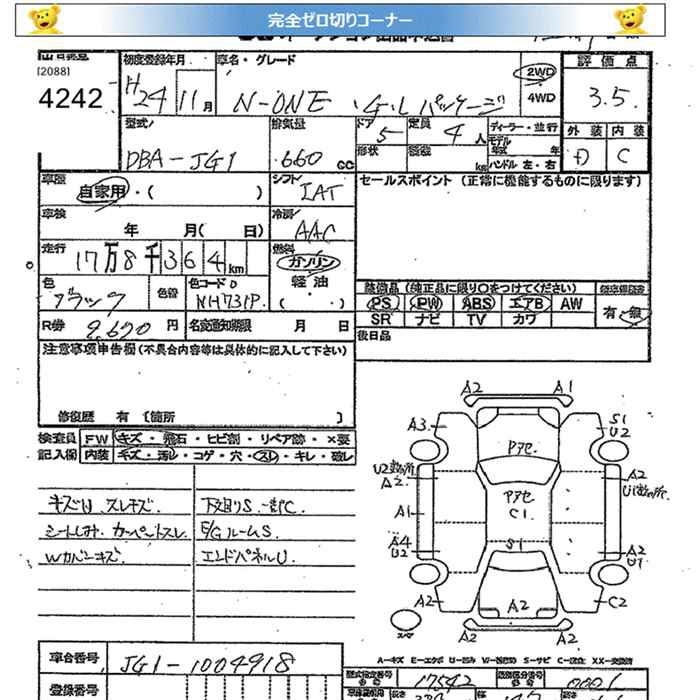 完全ゼロ切りコーナー
[2088]
4242
初度登録年月
H24 11月
車名・グレード
N-ONE ・G・Lパッケージ
2WD
4WD
評価点
3.5
外装 内装
D C
型式
DBA-JG1
排気量
660 cc
ドア
5
定員
4人
形状
積載
kg
ディーラー・並行
モデル
年式 年
ハンドル 左・右
車歴
自家用・( )
シフト
IAT
セールスポイント (正常に機能するものに限ります)
車検
年 月( 日)
冷房
AAC
走行
17万8千364km
燃料
ガソリン
軽油
( )
色
ブラック
色替
色コードNo
NH731P
装備品 (純正品に限り○をつけてください)
PS PW ABS エアB AW
SR ナビ TV カワ
有・無
R券 9,690円
名変通知期限 月 日
後日品
注意事項申告欄(不具合内容等は具体的に記入して下さい)
修復歴 有 [箇所 ]
検査員 FW キズ・飛石・ヒビ割・リペア跡・×要
記入欄 内装 キズ・汚レ・コゲ・穴・スレ・キレ・破レ
キズU スレキズ 下廻りS 一部C
シートしみ カーペットスレ E/GルームS
Wカバーキズ エンドパネルU
A2 A1
A3 S1
U2
Pアセ
U2数ヶ所
A2
A2
U1数ヶ所
Pアセ
C1
A1
A4
U2
S1
A2
U1
A2 A2 C2
A2 A2
スペア
A-キズ E-エクボ U-凹み W-補修跡 S-サビ C-腐食 XX-交換済
車台番号 JG1-1004918
型式指定番号 17542
類別区分番号 0001
登録番号
長さ